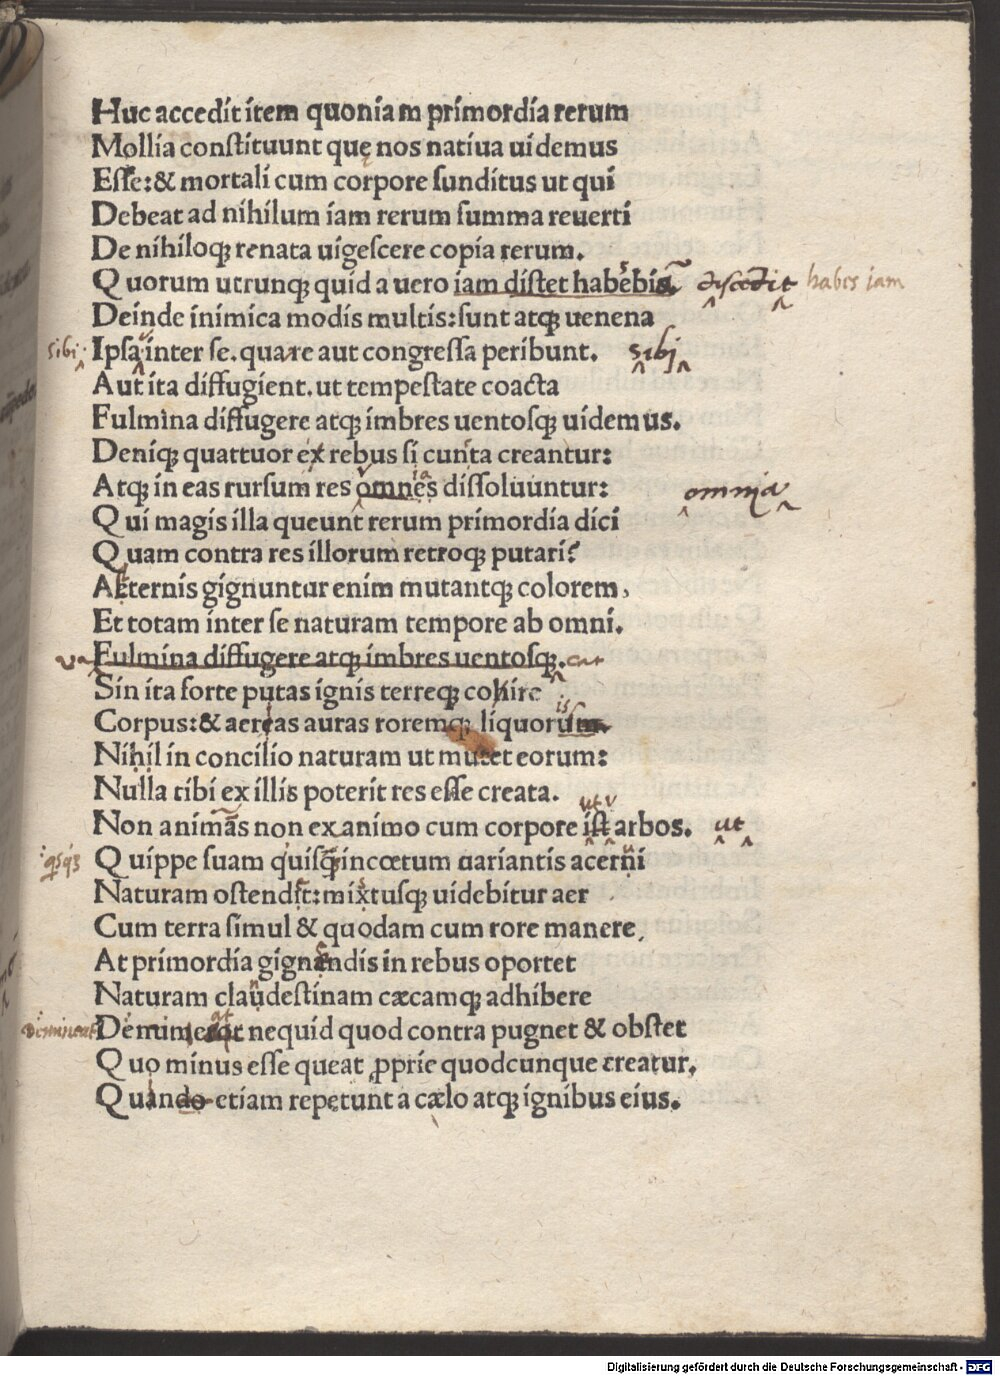 Huc accedit item quoniam primordia rerum
Mollia constituunt quę nos natiua uidemus
Esse: & mortali cum corpore funditus ut qui
Debeat ad nihilum iam rerum summa reuerti
De nihiloq; renata uigescere copia rerum.
Quorum utrunq; quid a uero iam distet habebis. discedit habes iam
Deinde inimica modis multis: sunt atq; uenena
sibi Ipsa inter se. quare aut congressa peribunt. sibi
Aut ita diffugient. ut tempestate coacta
Fulmina diffugere atq; imbres uentosq; uidemus.
Deniq; quattuor ex rebus si cunta creantur:
Atq; in eas rursum res omnes dissoluuntur: omnia
Qui magis illa queunt rerum primordia dici
Quam contra res illorum retroq; putari?
Aeternis gignuntur enim mutantq; colorem,
Et totam inter se naturam tempore ab omni.
va Fulmina diffugere atq; imbres uentosq;. cat
Sin ita forte putas ignis terreq; cohire
Corpus: & aereas auras roremq; liquorum
is
Nihil in concilio naturam ut mutet eorum:
Nulla tibi ex illis poterit res esse creata.
Non animas non exanimo cum corpore ist arbos. ut
ut v
Quippe suam quisq; incœtum uariantis acerni
Naturam ostendit: mixtusq; uidebitur aer
Cum terra simul & quodam cum rore manere,
At primordia gignandis in rebus oportet
Naturam claudestinam cæcamq; adhibere
Denimeror nequid quod contra pugnet & obstet
at
Quo minus esse queat ꝓprie quodcunque creatur,
Quando etiam repetunt a cælo atq; ignibus eius.
Digitalisierung gefördert durch die Deutsche Forschungsgemeinschaft - DFG